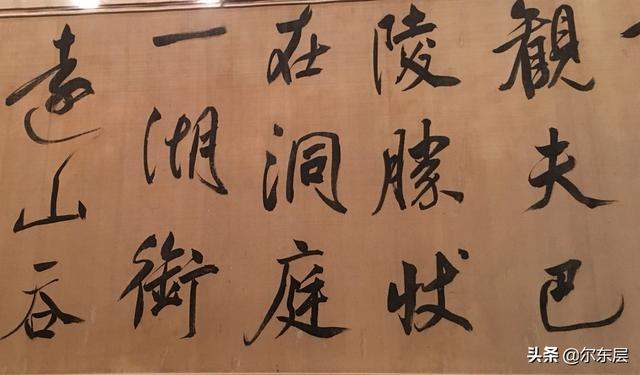 觀夫巴
陵勝狀
在洞庭
一湖銜
遠山吞
头条 @尔东层